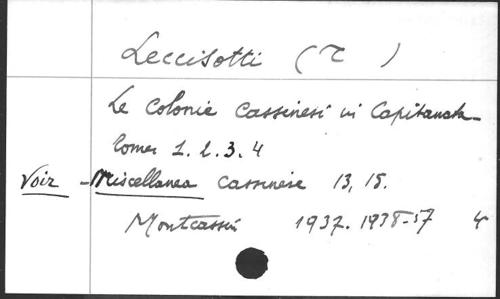 Leccisotti ( T )
Le Colonie Cassinesi in Capitanata
Tomes 1. 2. 3. 4
Voir - Miscellanea Cassinese 13, 15.
Montcassin 1937. 1938-57 4°